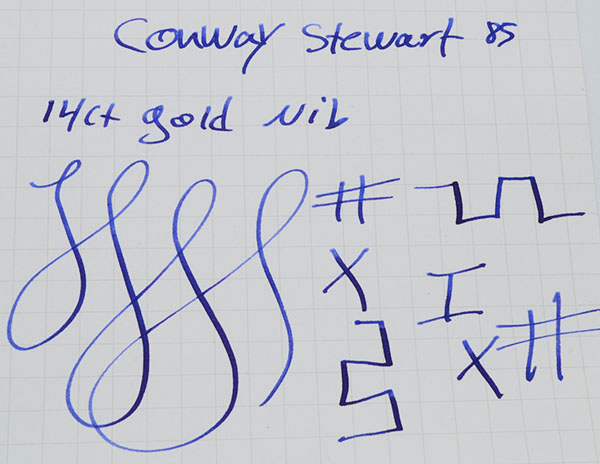 Conway Stewart 85
14ct gold nib
#
X I
X #